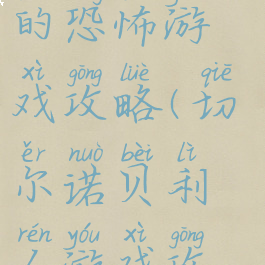 的恐怖游
xì gōng lüè qiē
戏攻略(切
ěr nuò bèi lì
尔诺贝利
rén yóu xì gōng
人游戏攻